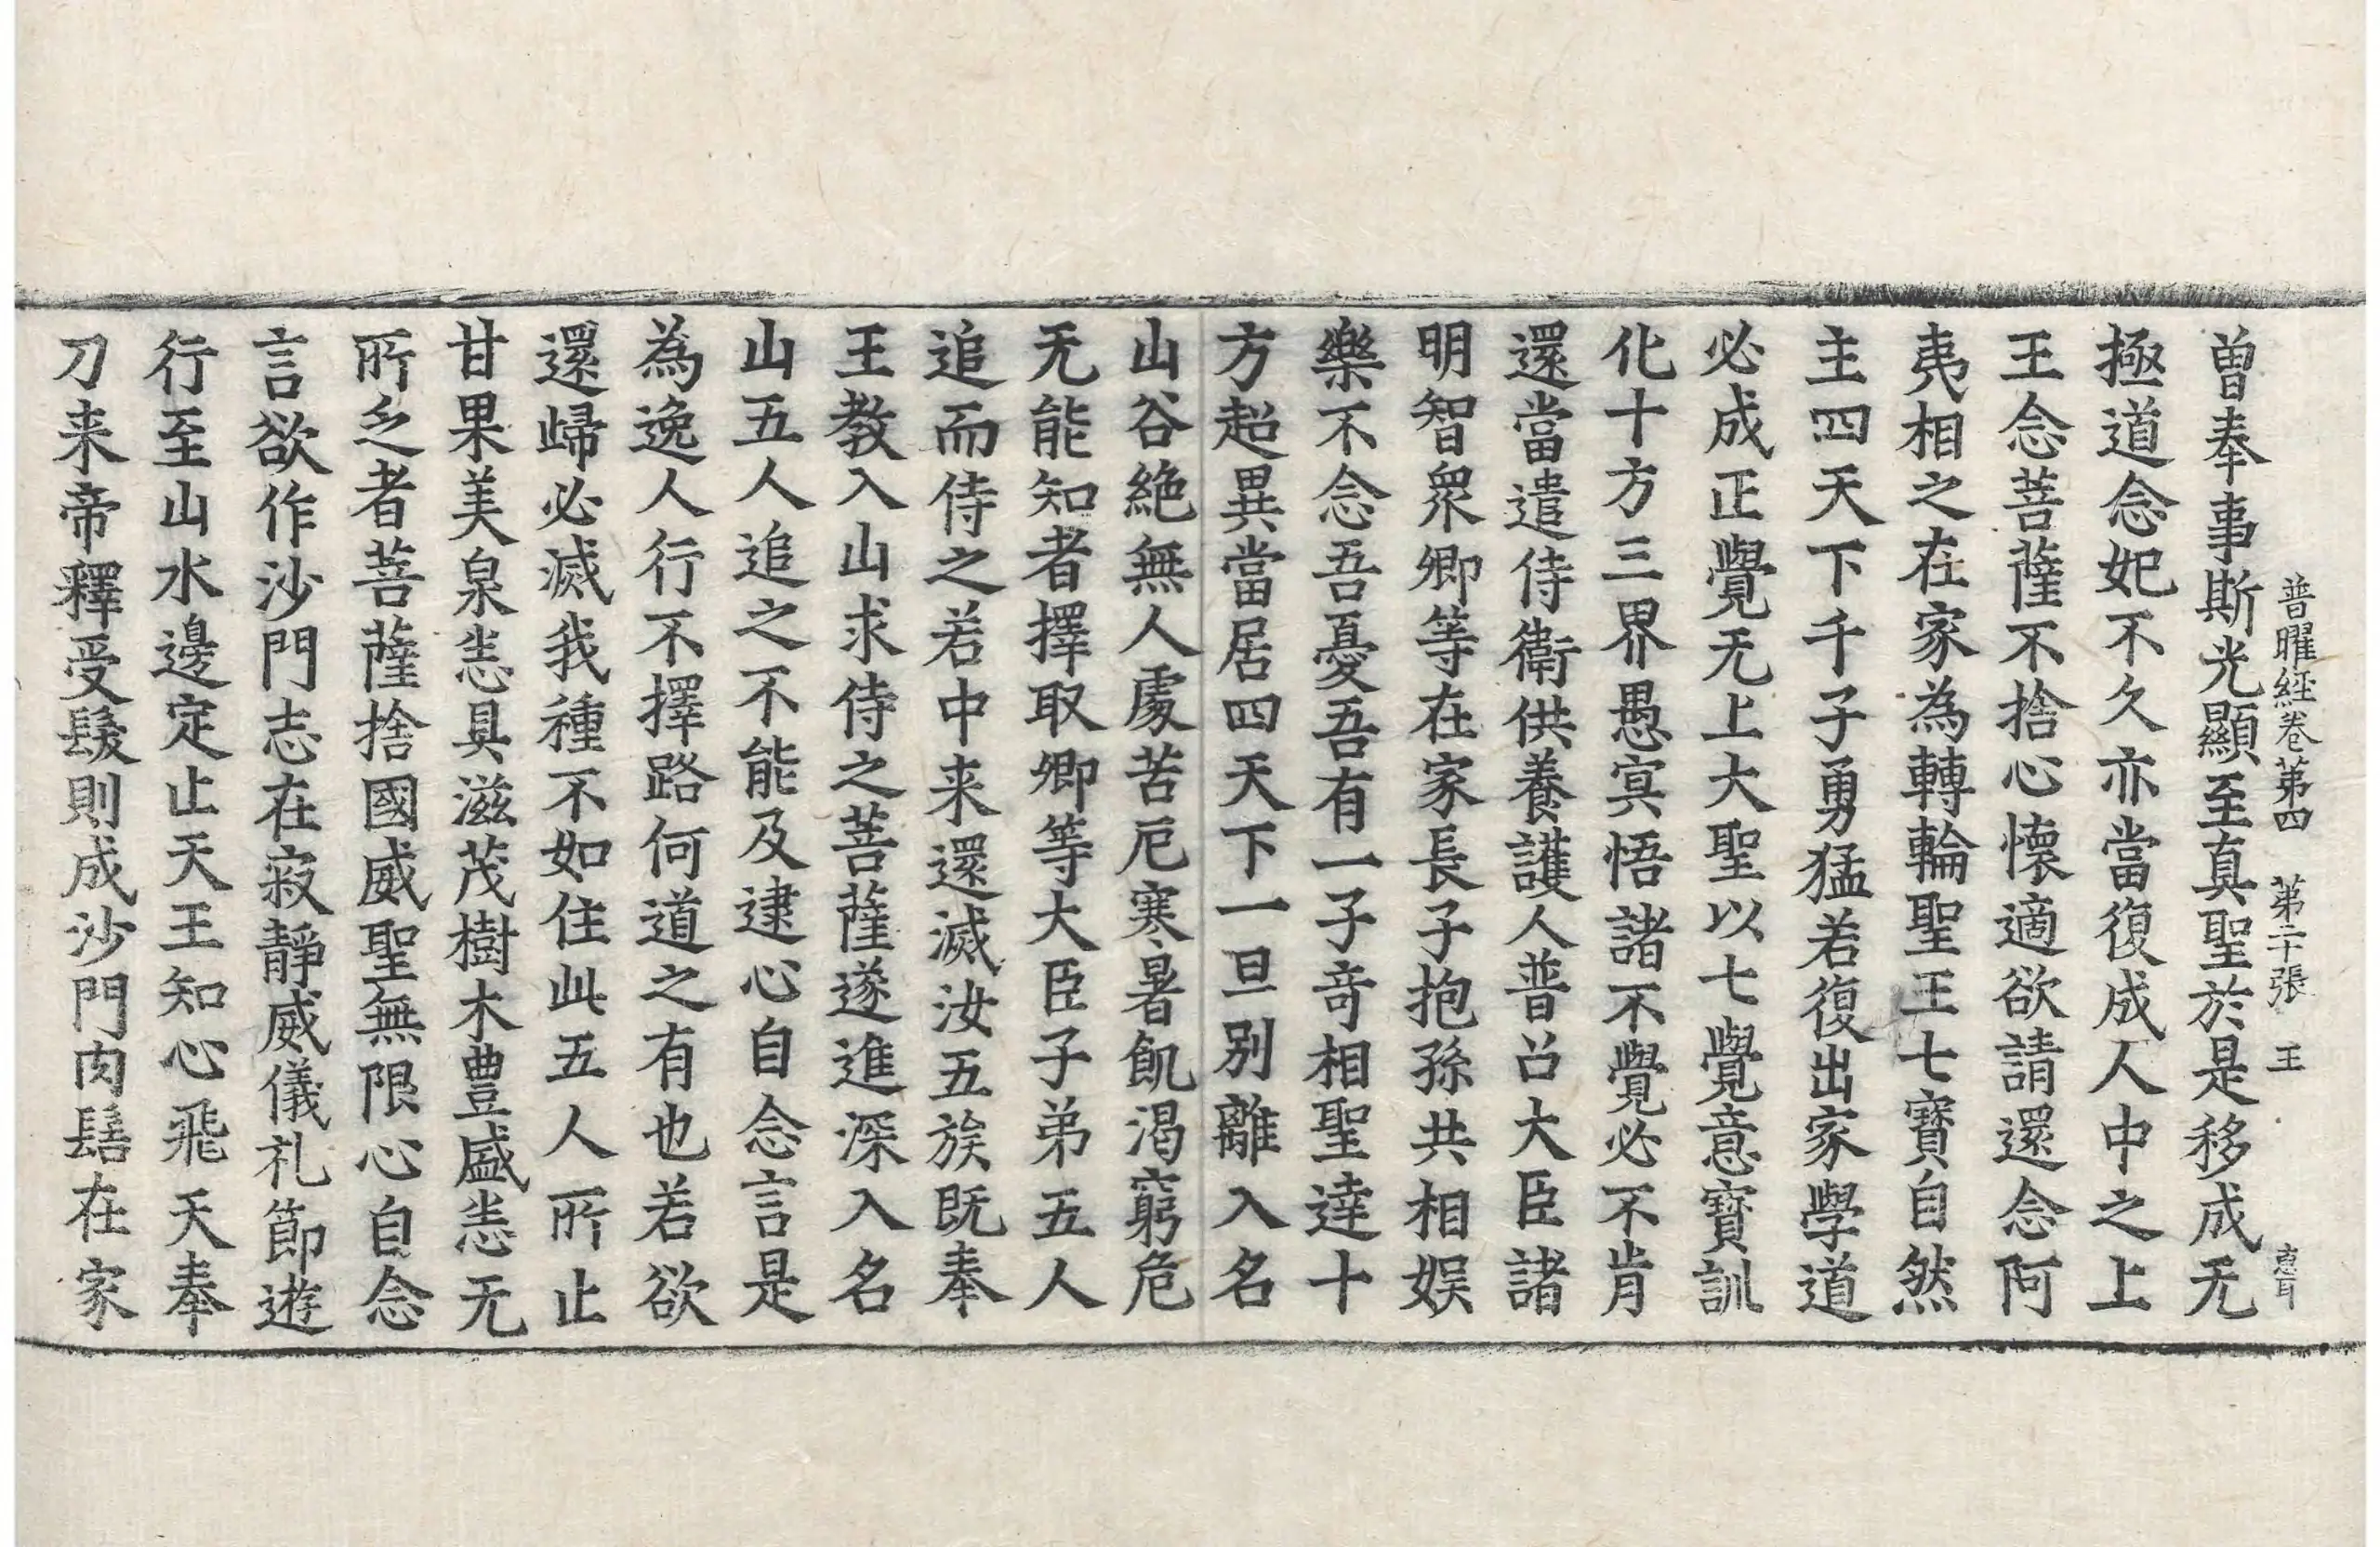 普曜経卷第四 第二十張 王
曽奉事斯光顯至真聖於是移成无
極道念妃不久亦當復成人中之上
王念菩薩不捨心懷適欲請還念阿
夷相之在家為轉輪聖王七寳自然
主四天下千子勇猛若復出家學道
必成正覺无上大聖以七覺意寳訓
化十方三界愚冥悟諸不覺必不肯
還當遣侍衛供養護人普召大臣諸
明智衆卿等在家長子抱孫共相娱
樂不念吾憂吾有一子竒相聖達十
方超異當居四天下一旦別離入名
山谷絶無人處苦厄寒暑飢渴窮危
无能知者擇取卿等大臣子弟五人
追而侍之若中来還滅汝五族既奉
王教入山求侍之菩薩遂進深入名
山五人追之不能及逮心自念言是
為逸人行不擇路何道之有也若欲
還歸必滅我種不如住此五人所止
甘果美泉恙具滋茂樹木豊盛恙无
所乏者菩薩捨國威聖無限心自念
言欲作沙門志在寂靜威儀礼節遊
行至山水邊定止天王知心飛天奉
刀来帝釋受髮則成沙門肉髻在家